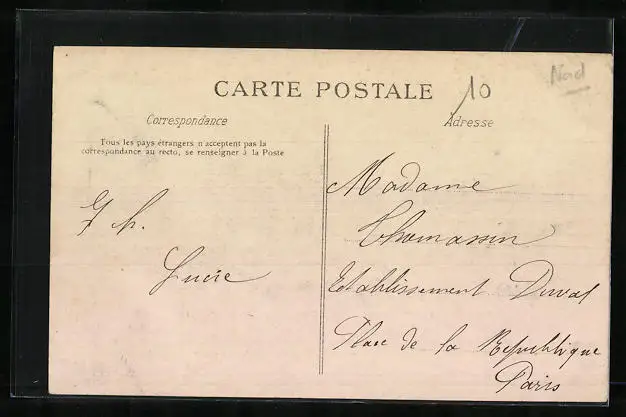 Nord
10
CARTE POSTALE
Correspondance
Adresse
Tous les pays étrangers n'acceptent pas la
correspondance au recto, se renseigner à la Poste
Madame
Thomassin
Etablissement Duval
Place de la République
Paris
Lucie